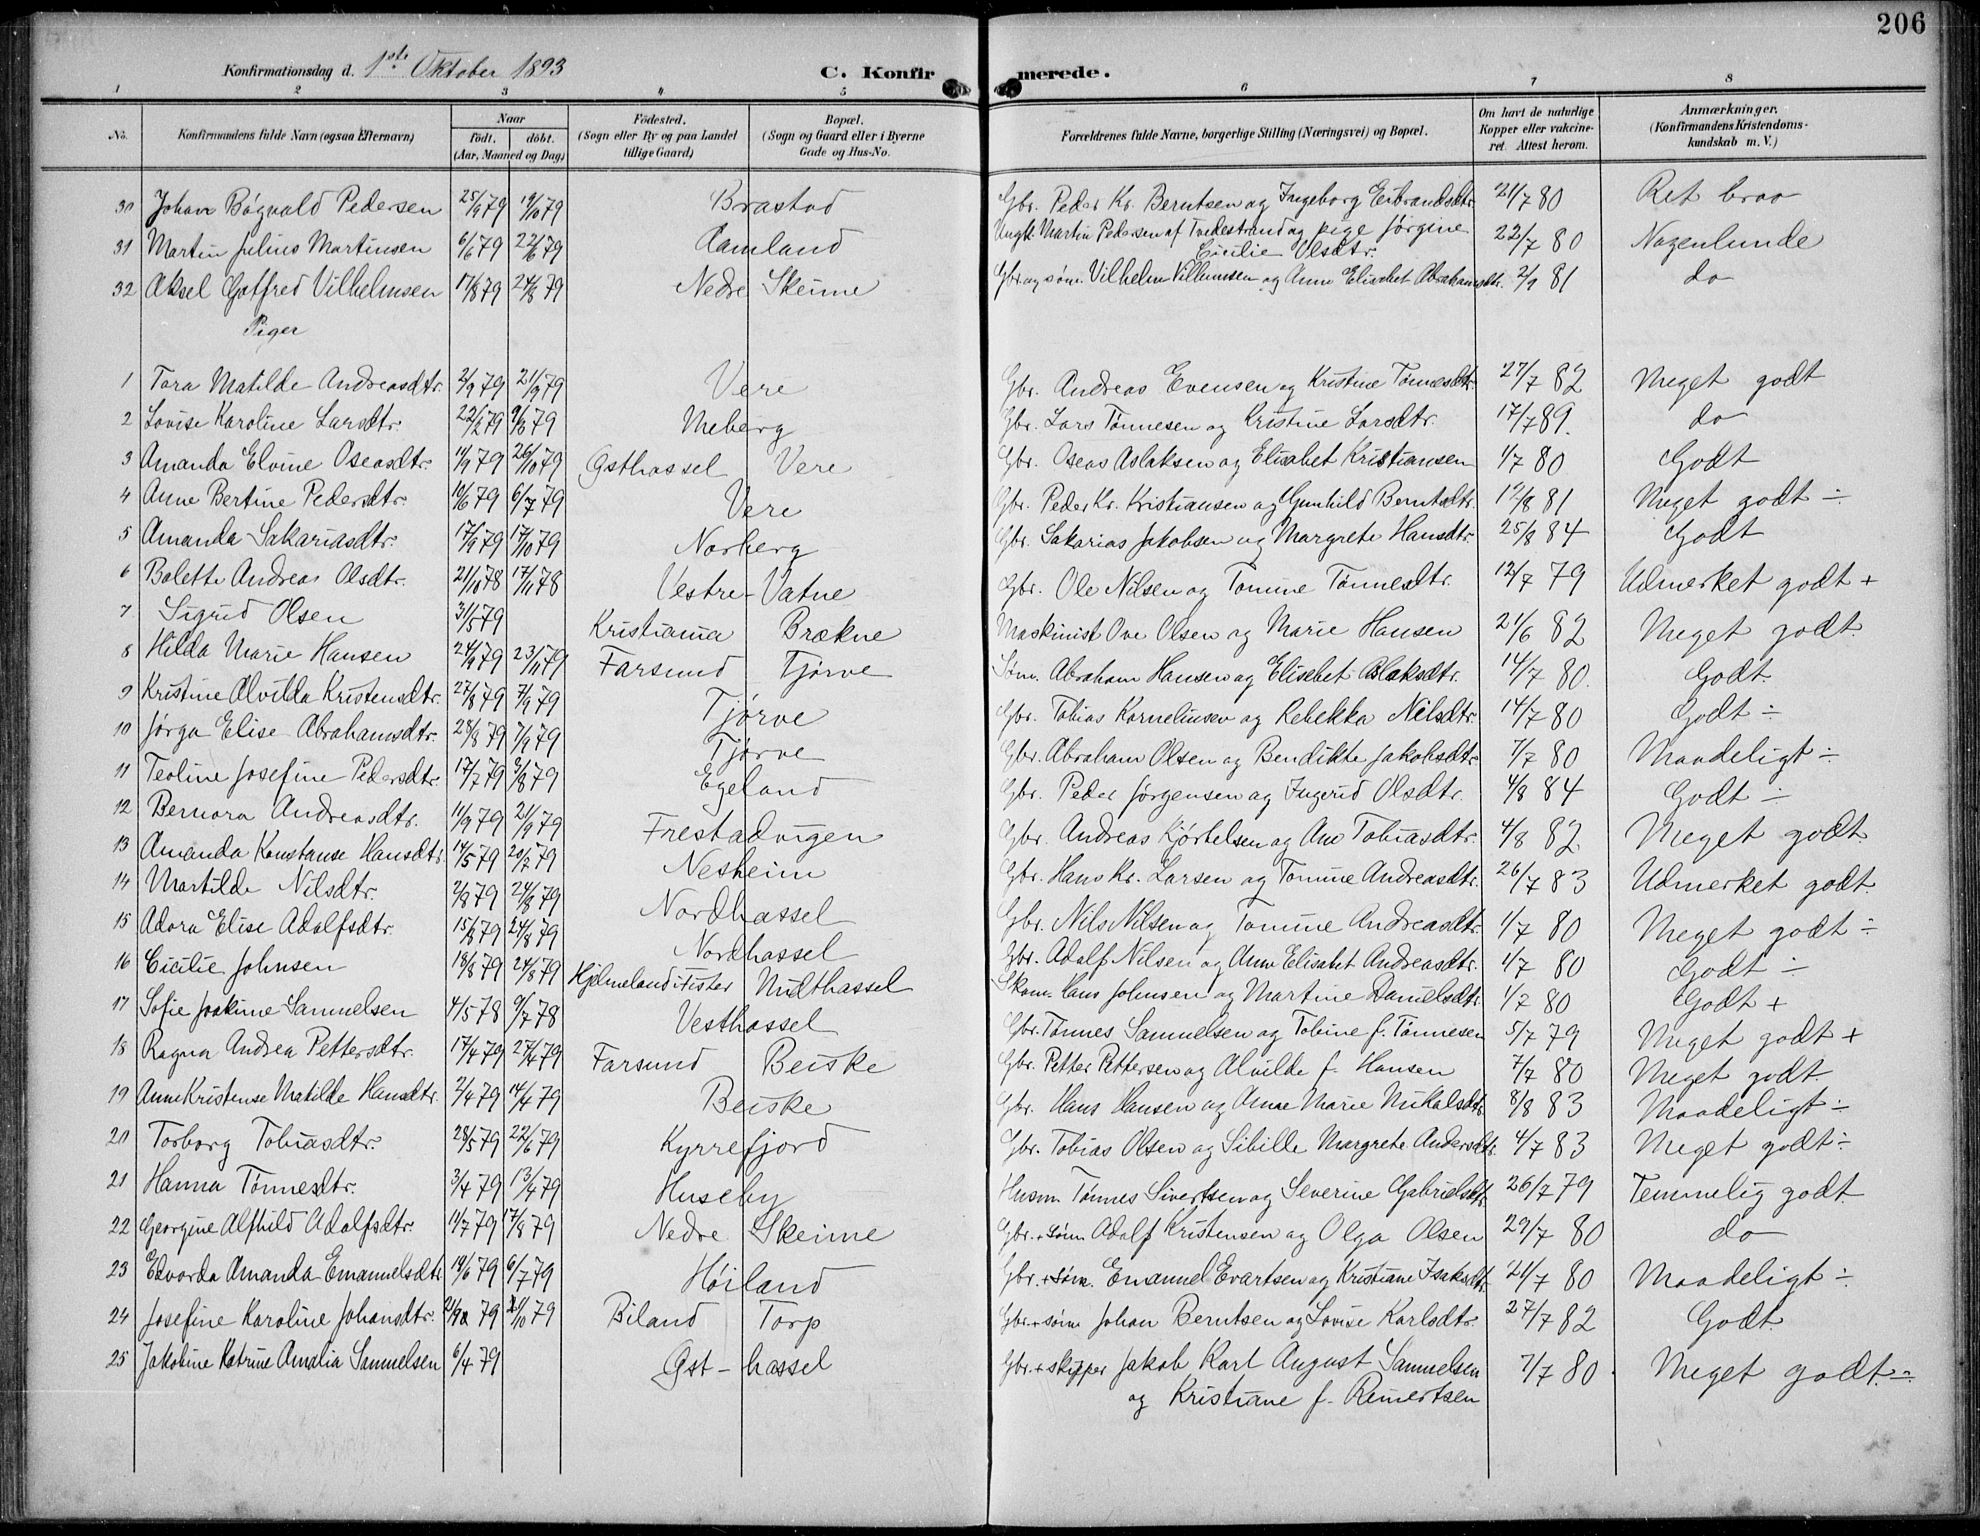 206
Konfirmationsdag d. 1ste Oktober 1893 C. Konfirmerede.
1 2 3 4 5 6 7 8
No. Konfirmandens fulde Navn (ogsaa Efternavn) Naar født, døbt. (Aar, Maaned og Dag) Födested. (Sogn eller By og paa Landet tillige Gaard) Bopæl. (Sogn og Gaard eller i Byerne Gade og Hus-No. Forældrenes fulde Navne, borgerlige Stilling (Næringsvei) og Bopæl. Om havt de naturlige Kopper eller vakcineret. Attest herom. Anmærkninger. (Konfirmandens Kristendomskundskab m. V.)
30 Johan Bógvald Pedersen 25/9 79 19/10 79 Brastad Gbr. Peder Kr. Berntsen og Ingeborg Erbrandsdtr. 21/7 80 Ret bra
31 Martin Julius Martinsen 6/6 79 22/6 79 Aamland Ungk. Martin Pedersen af Tvedestrand og pige Jørgine Cicilie Olsdtr. 22/7 80 Nogenlunde
32 Aksel Gotfred Vilhelmsen 17/8 79 24/8 79 Nedre Skeime Gbr. og søm. Vilhelm Villumsen og Anne Elisabet Abrahamsdtr. 2/9 81 do
Piger
1 Tora Matilde Andreasdtr. 2/9 79 21/9 79 Vere Gbr. Andreas Evensen og Kristine Tønnesdtr. 27/7 82 Meget godt
2 Lovise Karoline Larsdtr. 22/2 79 9/3 79 Meberg Gbr. Lars Tønnesen og Kristine Larsdtr. 17/7 89. do
3 Amanda Elvine Oseasdtr. 11/9 79 26/10 79 Østhassel Vere Gbr. Oseas Aslaksen og Elisabet Kristiansen 1/7 80 Godt
4 Anne Bertine Pedersdtr. 10/6 79 6/7 79 Vere Gbr. Peder Kr. Kristiansen og Gunhild Berntsdtr. 12/8 81 Meget godt ÷
5 Amanda Sakariasdtr. 17/9 79 17/10 79 Norberg Gbr. Sakarias Jakobsen og Margrete Hansdtr. 25/8 84 Godt
6 Bolette Andrea Olsdtr. 21/10 78 17/11 78 Vestre-Vatne Gbr. Ole Nilsen og Tomine Tønnesdtr. 12/7 79 Udmerket godt +
7 Sigrid Olsen 31/5 79 Kristiania Brekne Maskinist Ove Olsen og Marie Hansen 21/6 82 Meget godt.
8 Hilda Marie Hansen 24/9 79 23/11 79 Farsund Tjørve Søm. Abraham Hansen og Elisebet Aslaksdtr. 14/7 80. Godt.
9 Kristine Alvilda Kristensdtr. 27/8 79 7/9 79 Tjørve Gbr. Tobias Kornelinsen og Rebekka Nilsdtr. 14/7 80 Godt ÷
10 Jørga Elise Abrahamsdtr. 28/8 79 7/9 79 Tjørve Gbr. Abraham Olsen og Bendikte Jakobsdtr. 7/7 80 Maadeligt ÷
11 Teoline Josefine Pedersdtr. 17/7 79 3/8 79 Egeland Gbr. Peder Jørgensen og Ingerid Olsdtr. 4/8 84 Godt ÷
12 Bernora Andreasdtr. 11/9 79 21/9 79 Frestadvigen Gbr. Andreas Kjørkelsen og Ane Tobiasdtr. 4/8 82 Meget godt.
13 Amanda Konstanse Hansdtr. 14/5 79 20/7 79 Nesheim Gbr. Hans Kr. Larsen og Tomine Andreasdtr. 26/7 83 Udmerket godt.
14 Martilde Nilsdtr. 2/8 79 24/8 79 Nordhassel Gbr. Nils Nilsen og Tomine Andreasdtr. 1/7 80 Meget godt ÷
15 Adora Elise Adolfsdtr. 15/8 79 24/8 79 Nordhassel Gbr. Adolf Nilsen og Anne Elisabet Andreasdtr. 1/7 80 Godt ÷
16 Cicilie Johnsen 18/8 79 24/8 79 Hjelmeland i Fister Midthassel Skom. Hans Johnsen og Martine Danielsdtr. 1/7 80 Godt +
17 Sofie Joakime Samuelsen 4/5 78 9/7 78 Vesthassel Gbr. Tønnes Samuelsen og Tobine f. Tønnesen 5/7 79 Meget godt +
18 Ragna Andrea Pettersdtr. 17/4 79 27/4 79 Farsund Beiske Gbr. Petter Pettersen og Alvilde f. Hansen 7/7 80 Meget godt.
19 Anne Kristense Matilde Hansdtr. 2/4 79 14/4 79 Beiske Gbr. Hans Hansen og Anne Marie Nikolsdtr. 8/8 83 Maadeligt ÷
20 Torborg Tobiasdtr. 28/5 79 22/6 79 Kyrrefjord Gbr. Tobias Olsen og Sibille Margrete Andersdtr. 4/7 83 Meget godt ÷
21 Hanna Tønnesdtr. 3/4 79 13/4 79 Huseby Husm. Tønnes Sivertsen og Severine Gabrielsdtr. 26/7 79 Temmelig godt
22 Georgine Alfhild Adolfsdtr. 11/7 79 17/8 79 Nedre Skeime Gbr. + søm Adolf Kristensen og Olga Olsen 29/7 80 do
23 Edvarda Amanda Emanuelsdtr. 19/6 79 6/7 79 Høiland Gbr. + søm. Emanuel Evartsen og Kristiane Isaksdtr. 21/7 80 Maadeligt ÷
24 Josefine Karoline Johansdtr. 2/9 79 21/10 79 Biland Torp Gbr. + søm Johan Berntsen og Lovise Karlsdtr. 27/7 82 Godt.
25 Jakobine Katrine Amalia Samuelsen 6/4 79 Øst-hassel Gbr. + skipper Jakob Karl August Samuelsen 7/7 80 Meget godt ÷
og Kristiane f. Reinertsen